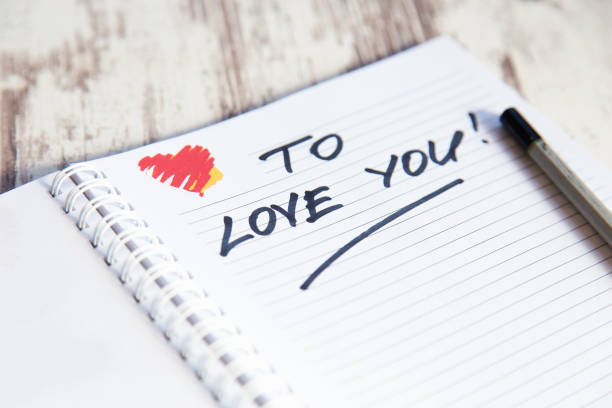 TO
LOVE YOU!